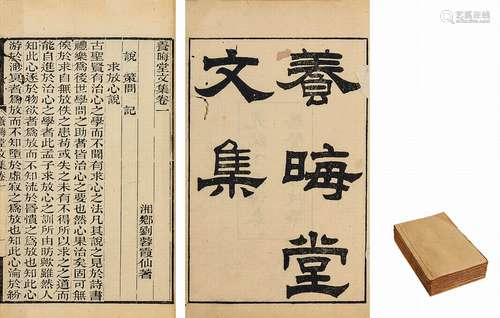 養晦堂
文集
養晦堂文集卷一
湘鄉劉蓉霞仙著
說 策問 記
求放心說
古聖賢有治心之學而不聞有求心之法凡其說之見於詩書
禮樂爲後世學問之助者皆治心之要也然心果治矣固可無
俟於求自無放佚之患苟或失之未有不得所以求之之道而
能自進於治心之學者此孟子求放心之訓所由昉歟雖然人
知此心逐於物欲者爲放而不知流於昏憒之爲放也知此心
游於者爲放而不知墮於虛寂之爲放也知此心淪於紛